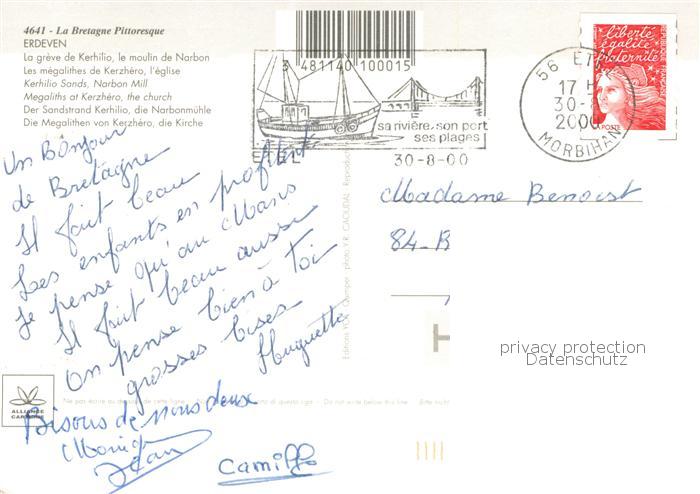 4641 - La Bretagne Pittoresque
ERDEVEN
La grève de Kerhilio, le moulin de Narbon
Les mégalithes de Kerzhéro, l'église
Kerhilio Sands, Narbon Mill
Megaliths at Kerzhero, the church
Der Sandstrand Kerhilio, die Narbonmühle
Die Megalithen von Kerzhéro, die Kirche
481140 100015
sa rivière, son port
ses plages
30-8-00
56
17 H
30-8
2000
MORBIHAN
liberté
égalité
fraternité
REPUBLIQUE FRANÇAISE
LA POSTE
Un Bonjour
de Bretagne
Il fait beau
Les enfants en profitent
Je pense qu'au Mans
Il fait beau aussi
On pense bien à toi
grosses bises
Huguette
Bisous de nous deux
Monique
Jean
Camille
Madame Benoist
84-
Editions YCA Quimper - photo Y.R. CAOUDAL Reproduct
H
privacy protection
Datenschutz
ALLIANCE
Ne pas écrire au dessous de cette ligne - di questa riga - Do not write below this line - Bitte nicht